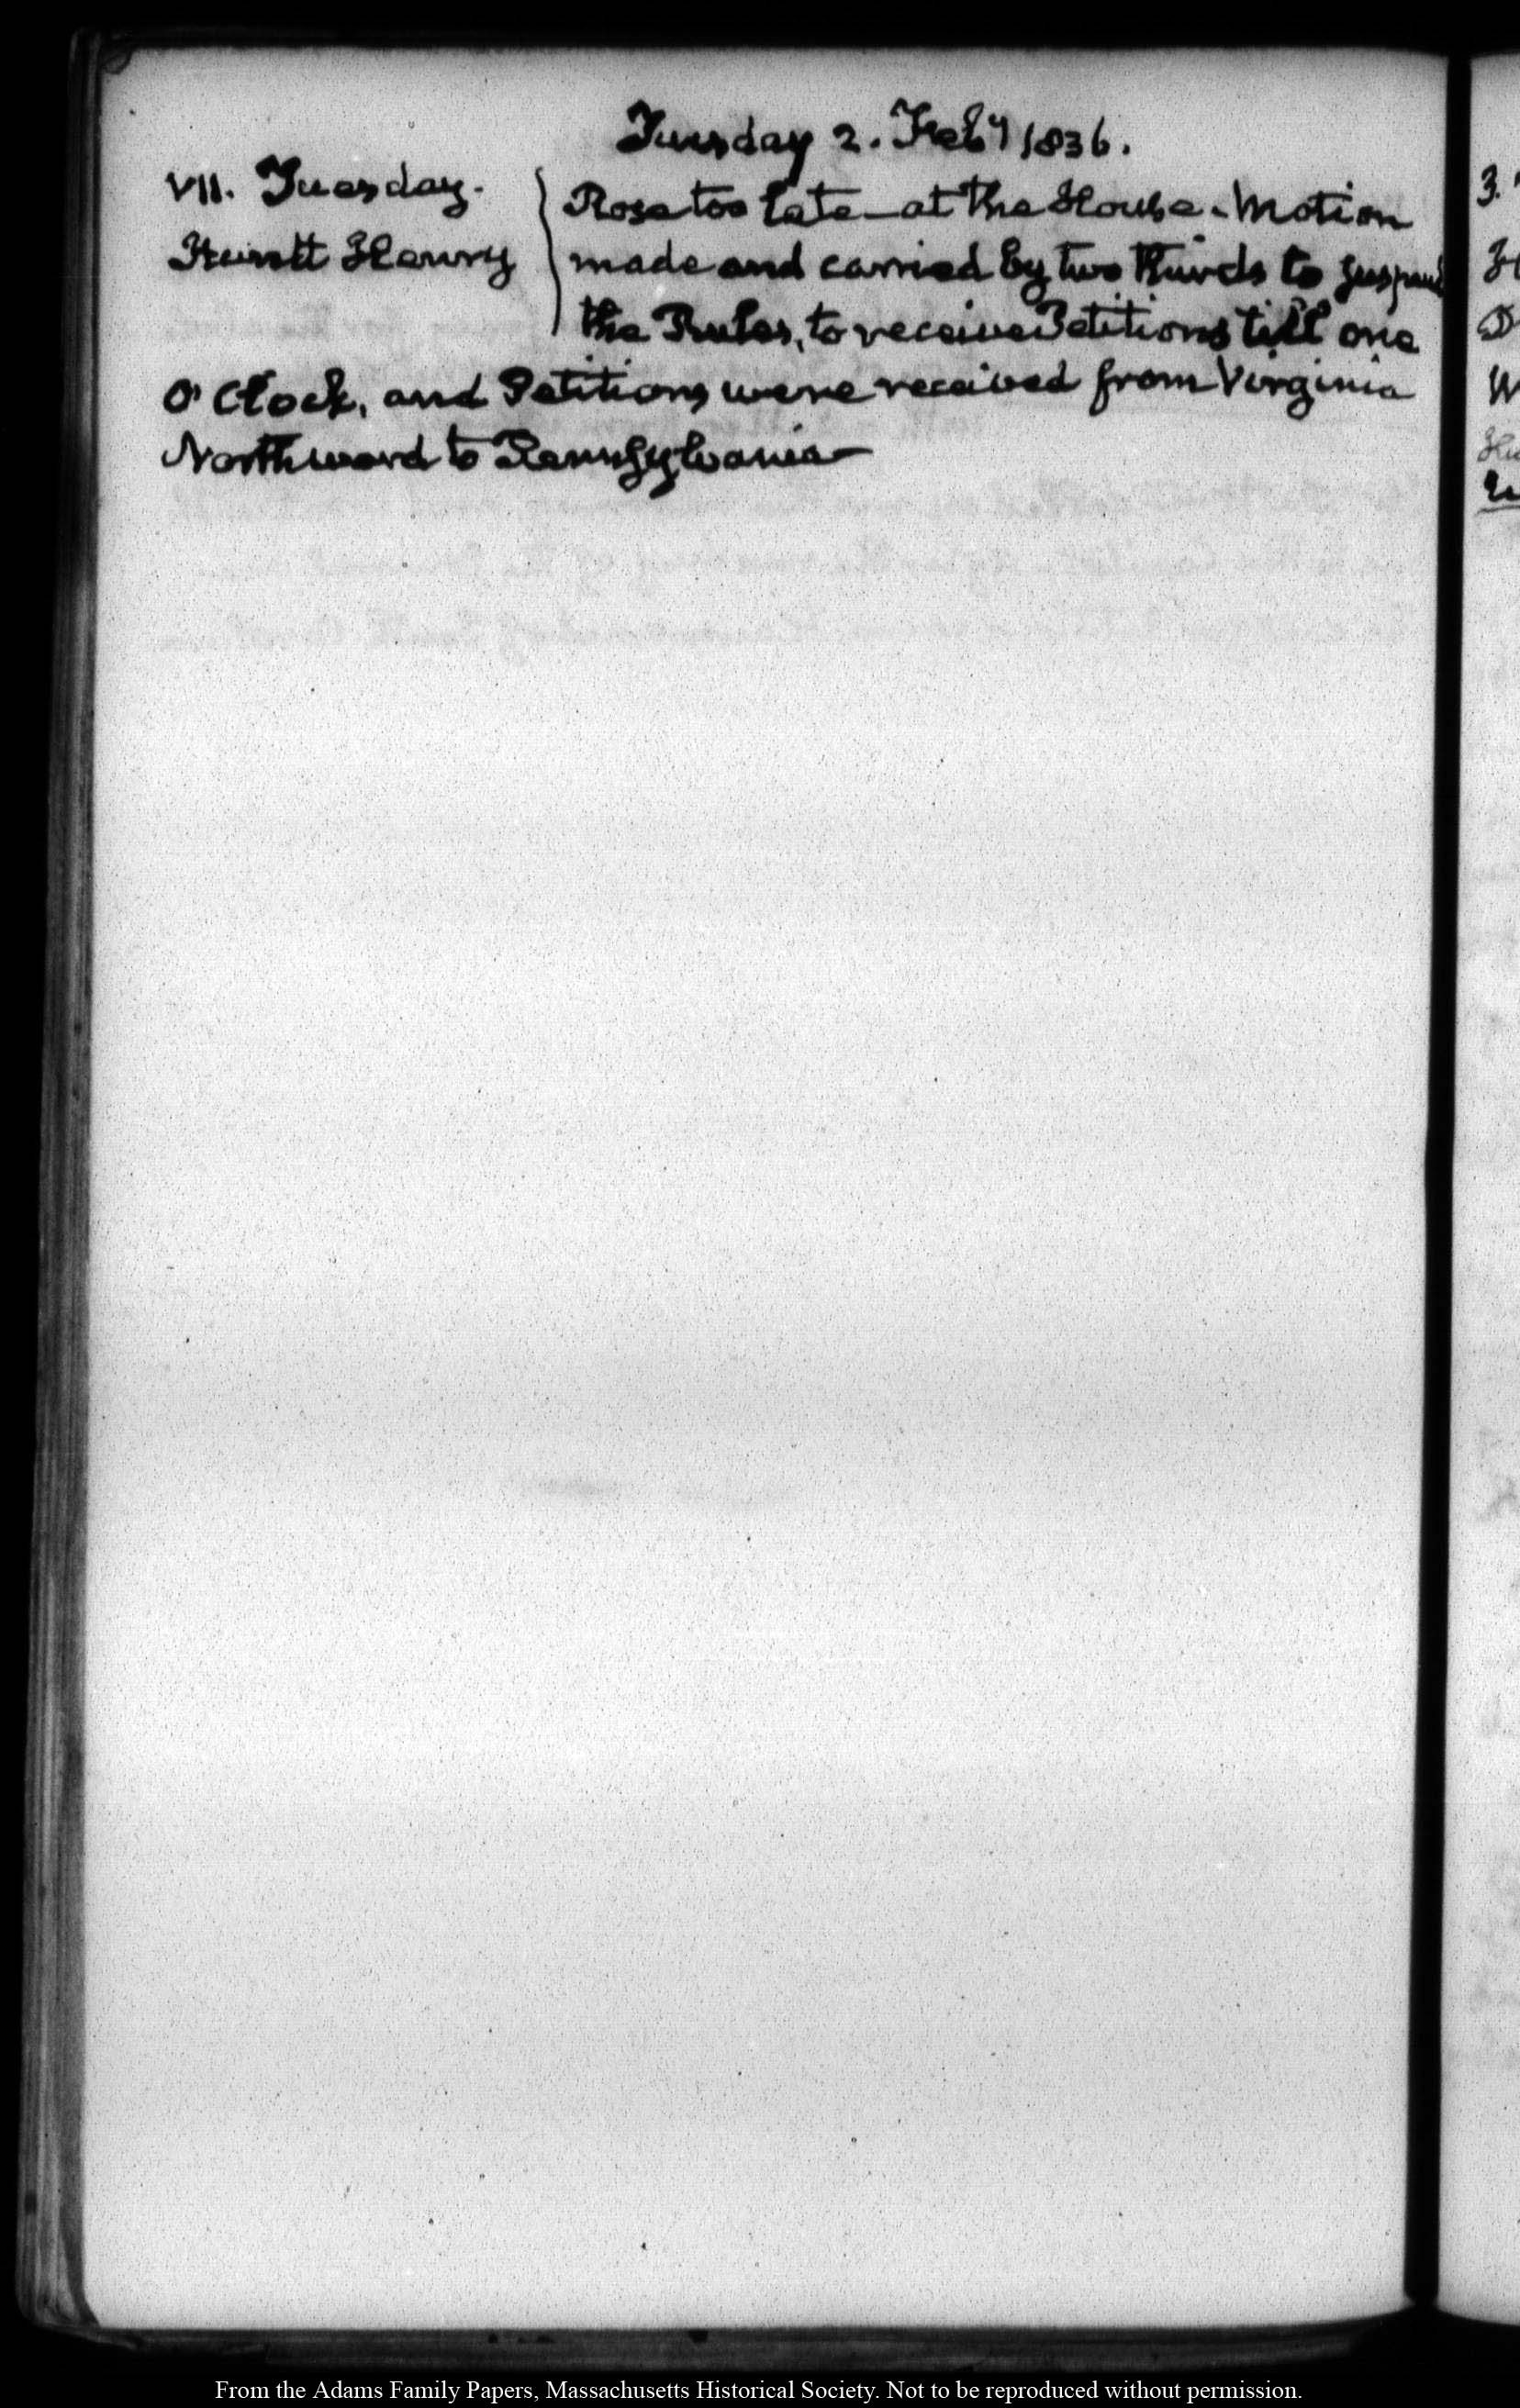 Tuesday 2. Feby 1836.
VII. Tuesday.
Henry
Rose too late—at the House. Motion
made and carried by two thirds to suspend
the Rules, to receive Petitions till one
O'Clock, and Petitions were received from Virginia
Northward to Pennsylvania—
From the Adams Family Papers, Massachusetts Historical Society. Not to be reproduced without permission.